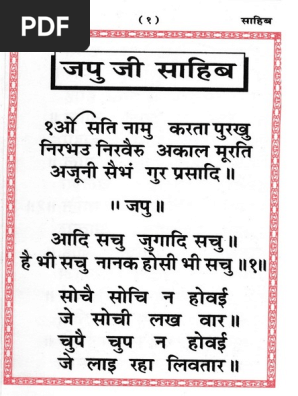 PDF
(१) साहिब
जपु जी साहिब
१ओ सति नामु करता पुरखु
निरभउ निरवैरु अकाल मूरति
अजूनी सैभं गुर प्रसादि॥
॥ जपु॥
आदि सचु जुगादि सचु॥
है भी सचु नानक होसी भी सचु॥१॥
सोचै सोचि न होवई
जे सोची लख वार॥
चुपै चुप न होवई
जे लाइ रहा लिवतार॥